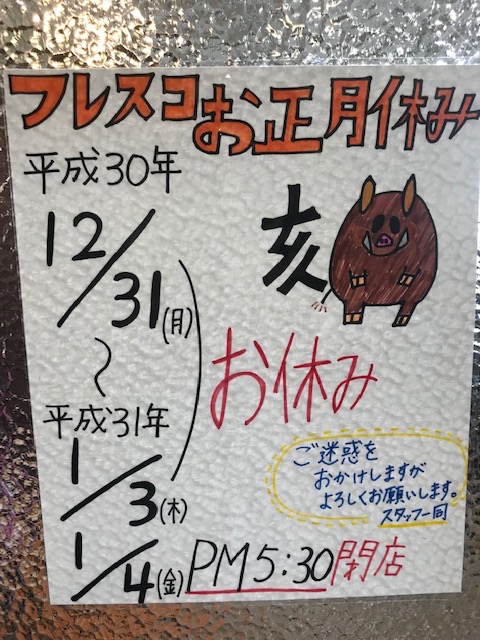 フレスコお正月休み
平成30年
亥
12/31(月)
〜
お休み
平成31年
1/3(木)
ご迷惑を
おかけしますが
よろしくお願いします。
スタッフ一同
1/4(金)PM5:30閉店